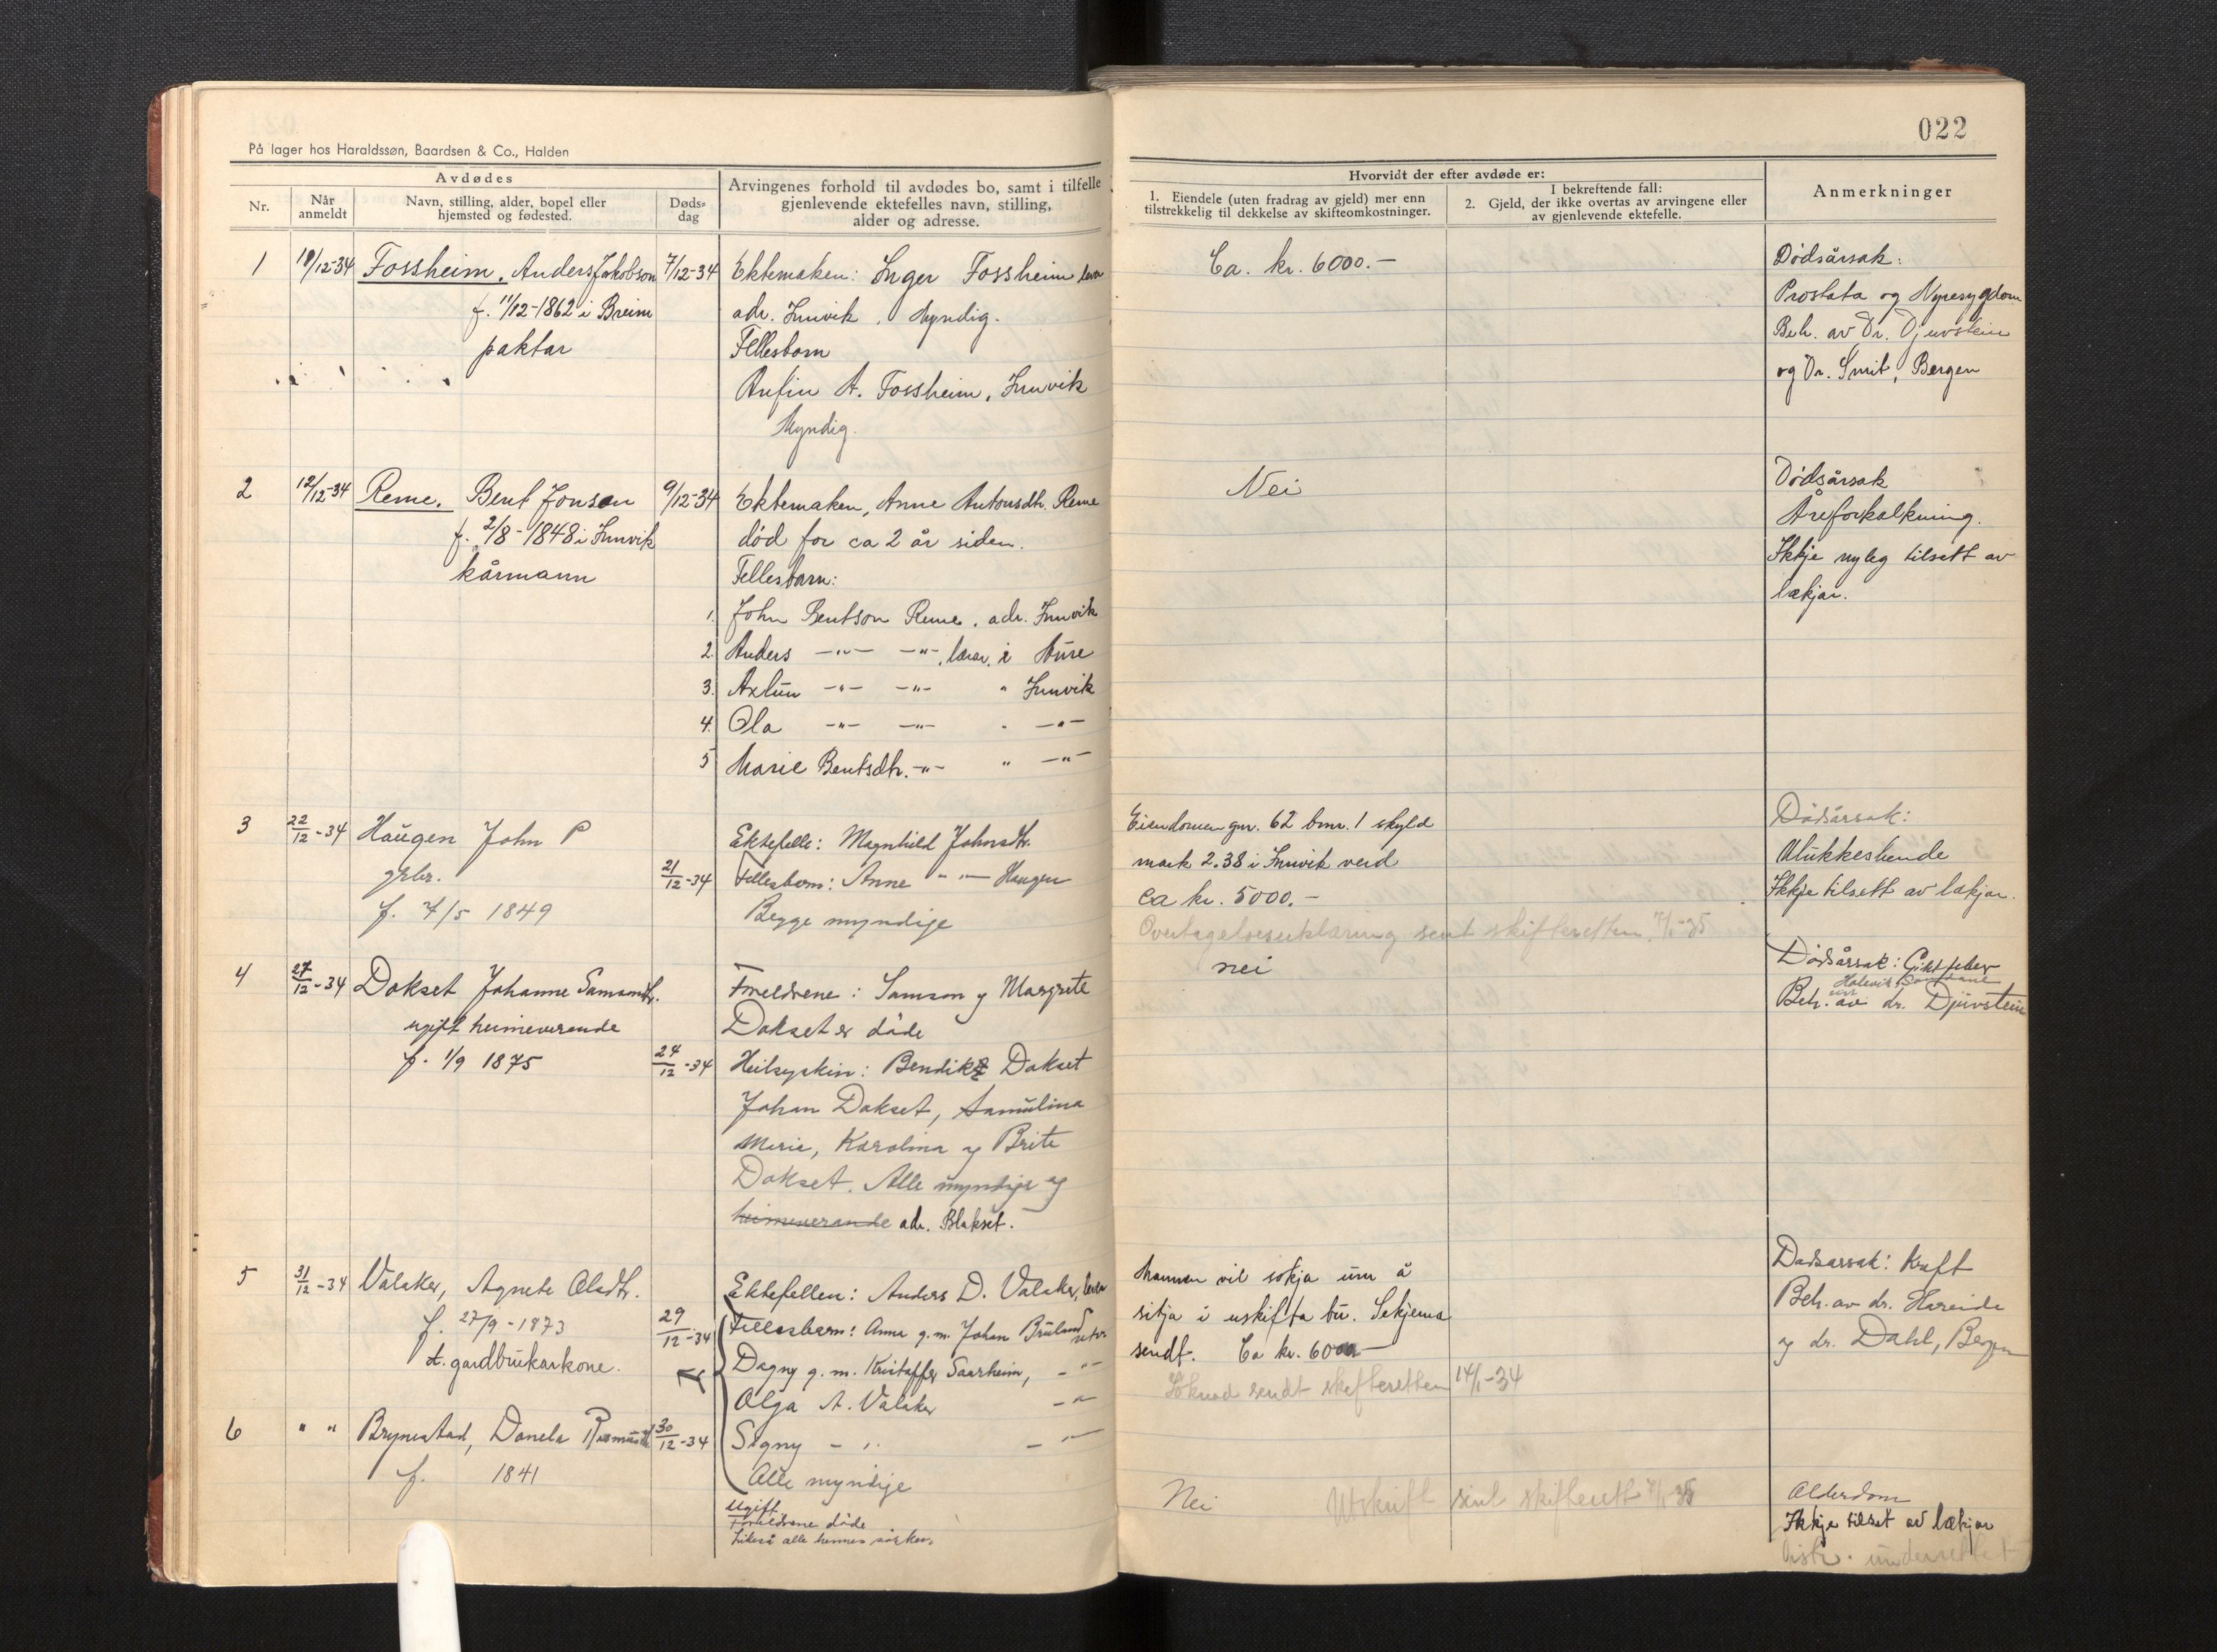 022
På lager hos Haraldssøn, Baardsen & Co., Halden
Avdødes
Nr.
Når anmeldt
Navn, stilling, alder, bopel eller hjemsted og fødested.
Døds-dag
Arvingenes forhold til avdødes bo, samt i tilfelle gjenlevende ektefelles navn, stilling, alder og adresse.
Hvorvidt der efter avdøde er:
1. Eiendele (uten fradrag av gjeld) mer enn tilstrekkelig til dekkelse av skifteomkostninger.
I bekreftende fall:
2. Gjeld, der ikke overtas av arvingene eller av gjenlevende ektefelle.
Anmerkninger
1 18/12-34 Fossheim, Anders Jakobson 7/12-34 Ektemaken: Inger Fossheim
f. 11/12-1862 i Breim adr. Innvik. Myndig.
paktar Fellesborn
Anfin A. Fossheim, Innvik
Myndig.
Ca. kr. 6000.-
Dødsårsak:
Prostata og Nyresygdom
Beh. av Dr. Djuvstein
og Dr. Smit, Bergen
2 12/12-34 Reme. Bent Jonson 9/12-34 Ektemaken, Anne Antonsdtr. Reme
f. 2/8-1848 i Innvik død for ca 2 år siden.
kårmann Fellesbarn:
1. John Bentson Reme, adr. Innvik
2. Anders -"- -"-, lærar, i Aure
3. Axlun -"- -"- " Innvik
4. Ola -"- -"- " -"-
5 Marie Bentsdtr. -"- " -"-
Nei
Dødsårsak
Åreforkalkning.
Ikkje nyleg tilsett av
lækjar.
3 22/12-34 Haugen John P Ektefelle: Magnhild Johnsdtr.
gbr. 21/12-34 Fellesborn: Anne -"- Haugen
f. 7/5 1849 Begge myndige
Eiendomen gnr. 62 bnr. 1 skyld
mark 2.38 i Innvik verd
ca kr. 5000.-
Overtagelseserklæring sent skifteretten 7/1-35
Dødsårsak:
Ulukkeshende
Ikkje tilsett av lækjar.
4 27/12-34 Dokset Johanne Samsondtr. Foreldrene: Samson og Margrete
ugift heimeverende Dokset er døde
f. 1/9 1875 24/12-34 Heilsyskin: Bendik Dokset
Johan Dokset, Samulina
Merie, Karolina og Brite
Dokset. Alle myndige og
heimeverande adr. Blakset.
nei
Dødsårsak: Giktfeber
Beh. av dr. Djuvstein
5 31/12-34 Valaker, Agnete Olsdtr. Ektefellen: Anders D. Valaker,
f. 27/9-1873 29/12-34 Fellesbarn: Anna g.m. Johan Bruland
gardbrukarkone. Dagny g.m. Kristoffer Saarheim, -"-
Olga A. Valaker -"-
Signy -"- -"-
Alle myndige
Mannen vil søkja um å
sitja i uskifta bu. Sekjema
sendt. Ca kr. 6000-
Søknad sendt skifteretten 14/1-34
Dødsårsak: Kræft
Beh. av dr. Hareide
og dr. Dahl, Bergen
6 " " Brynestad, Donela Rasmusd 30/12-34
f. 1841
Ugift
Foreldrene døde
Likeså alle hennes søsken.
Nei Utskrift sent skifterett 7/1-35
Alderdom
Ikkje tilset av lækjar
underrettet